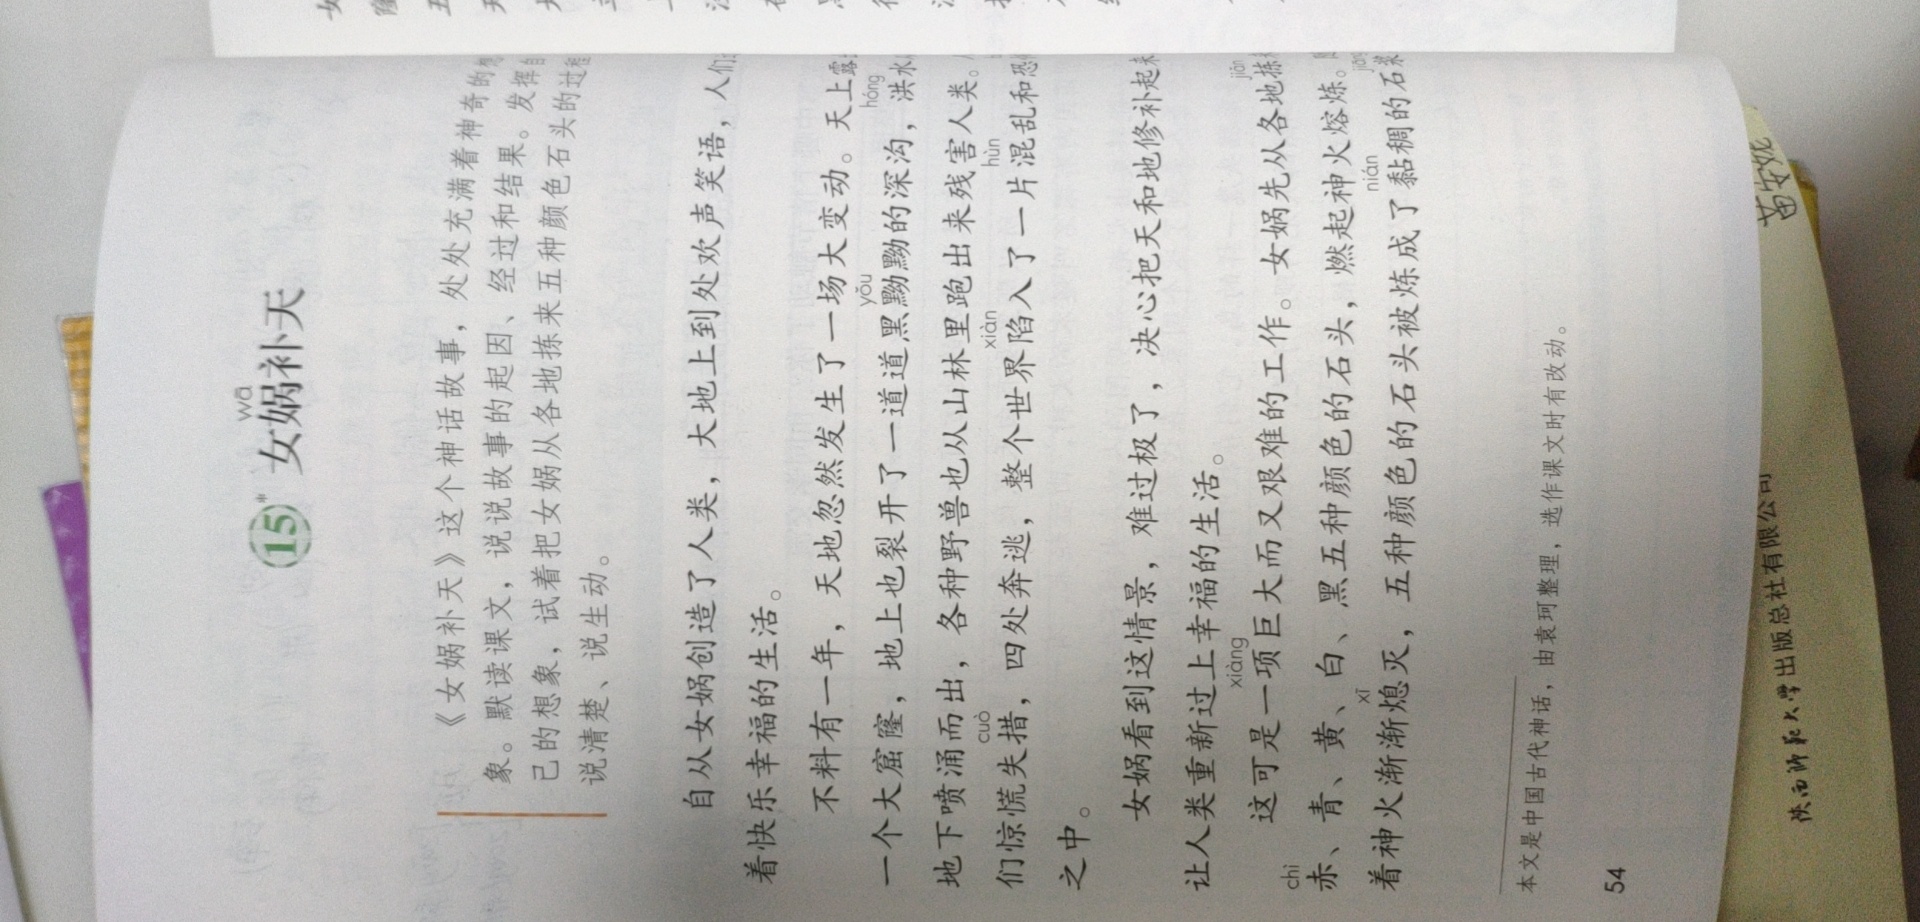 wā
15* 女娲补天
《女娲补天》这个神话故事，处处充满着神奇的
象。默读课文，说说故事的起因、经过和结果。发挥自
己的想象，试着把女娲从各地拣来五种颜色石头的过程
说清楚、说生动。
自从女娲创造了人类，大地上到处欢声笑语，人们
着快乐幸福的生活。
不料有一年，天地忽然发生了一场大变动。天上露
yǒu hóng
一个大窟窿，地上也裂开了一道道黑黝黝的深沟，洪水
地下喷涌而出，各种野兽也从山林里跑出来残害人类。
cuò xiàn hùn
们惊慌失措，四处奔逃，整个世界陷入了一片混乱和恐
之中。
女娲看到这情景，难过极了，决心把天和地修补起来
让人类重新过上幸福的生活。
xiàng jiǎn
这可是一项巨大而又艰难的工作。女娲先从各地拣
chì
赤、青、黄、白、黑五种颜色的石头，燃起神火熔炼。
xī nián jiāng
着神火渐渐熄灭，五种颜色的石头被炼成了黏稠的石浆
本文是中国古代神话，由袁珂整理，选作课文时有改动。
54
陕西师范大学出版总社有限公司